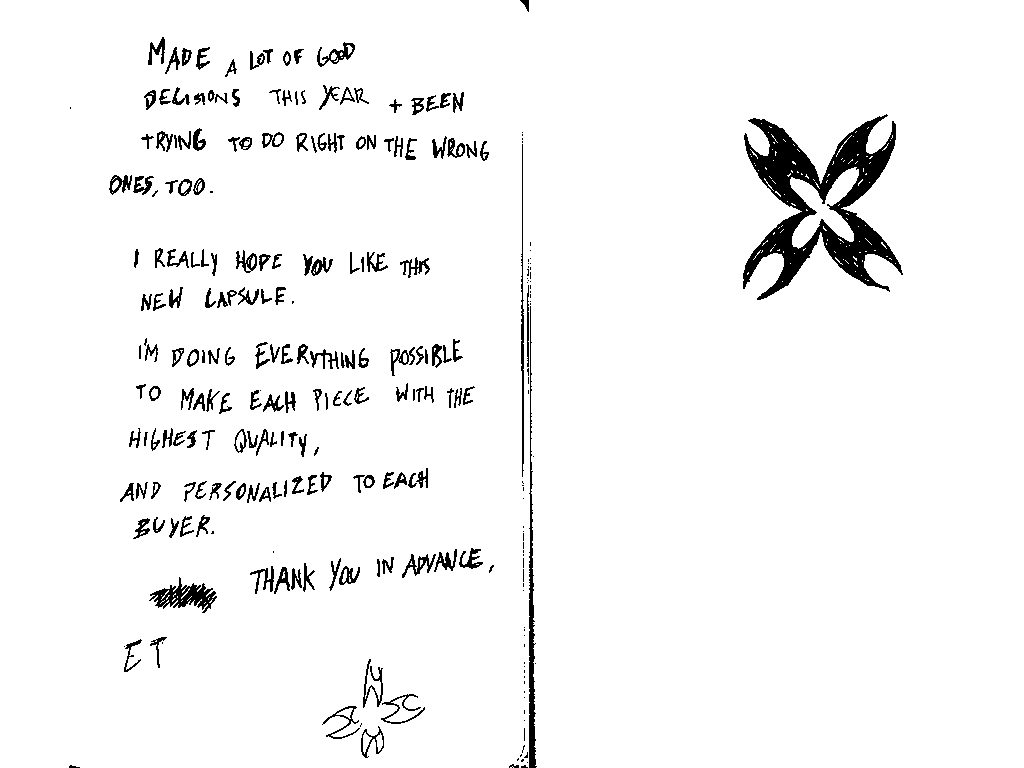 MADE A LOT OF GOOD
DECISIONS THIS YEAR + BEEN
TRYING TO DO RIGHT ON THE WRONG
ONES, TOO.
I REALLY HOPE YOU LIKE THIS
NEW CAPSULE.
I'M DOING EVERYTHING POSSIBLE
TO MAKE EACH PIECE WITH THE
HIGHEST QUALITY,
AND PERSONALIZED TO EACH
BUYER.
THANK YOU IN ADVANCE,
ET